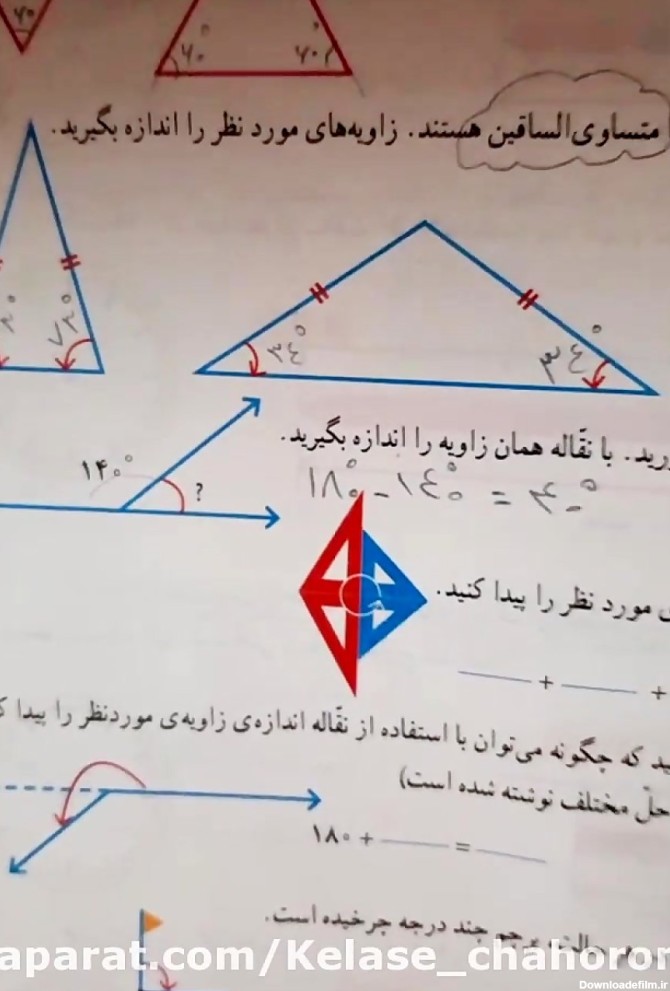 ۶۰°
۶۰° ۶۰°
متساوی‌الساقین هستند. زاویه‌های مورد نظر را اندازه بگیرید.
۳۴° ۳۴°
با نقّاله همان زاویه را اندازه بگیرید.
۱۴۰° ?
۱۸۰° - ۱۴۰° = ۴۰°
مورد نظر را پیدا کنید.
+ +
که چگونه می‌توان با استفاده از نقّاله اندازه‌ی زاویه‌ی موردنظر را پیدا
حلّ مختلف نوشته شده است)
۱۸۰ + =
چند درجه چرخیده است.
aparat.com/Kelase_chahoron
Downloadefilm.ir